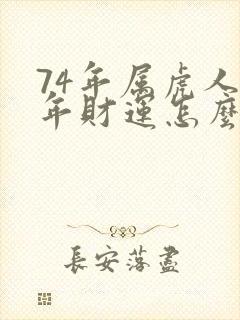 74年属虎人
年财運怎麼
長安落盡